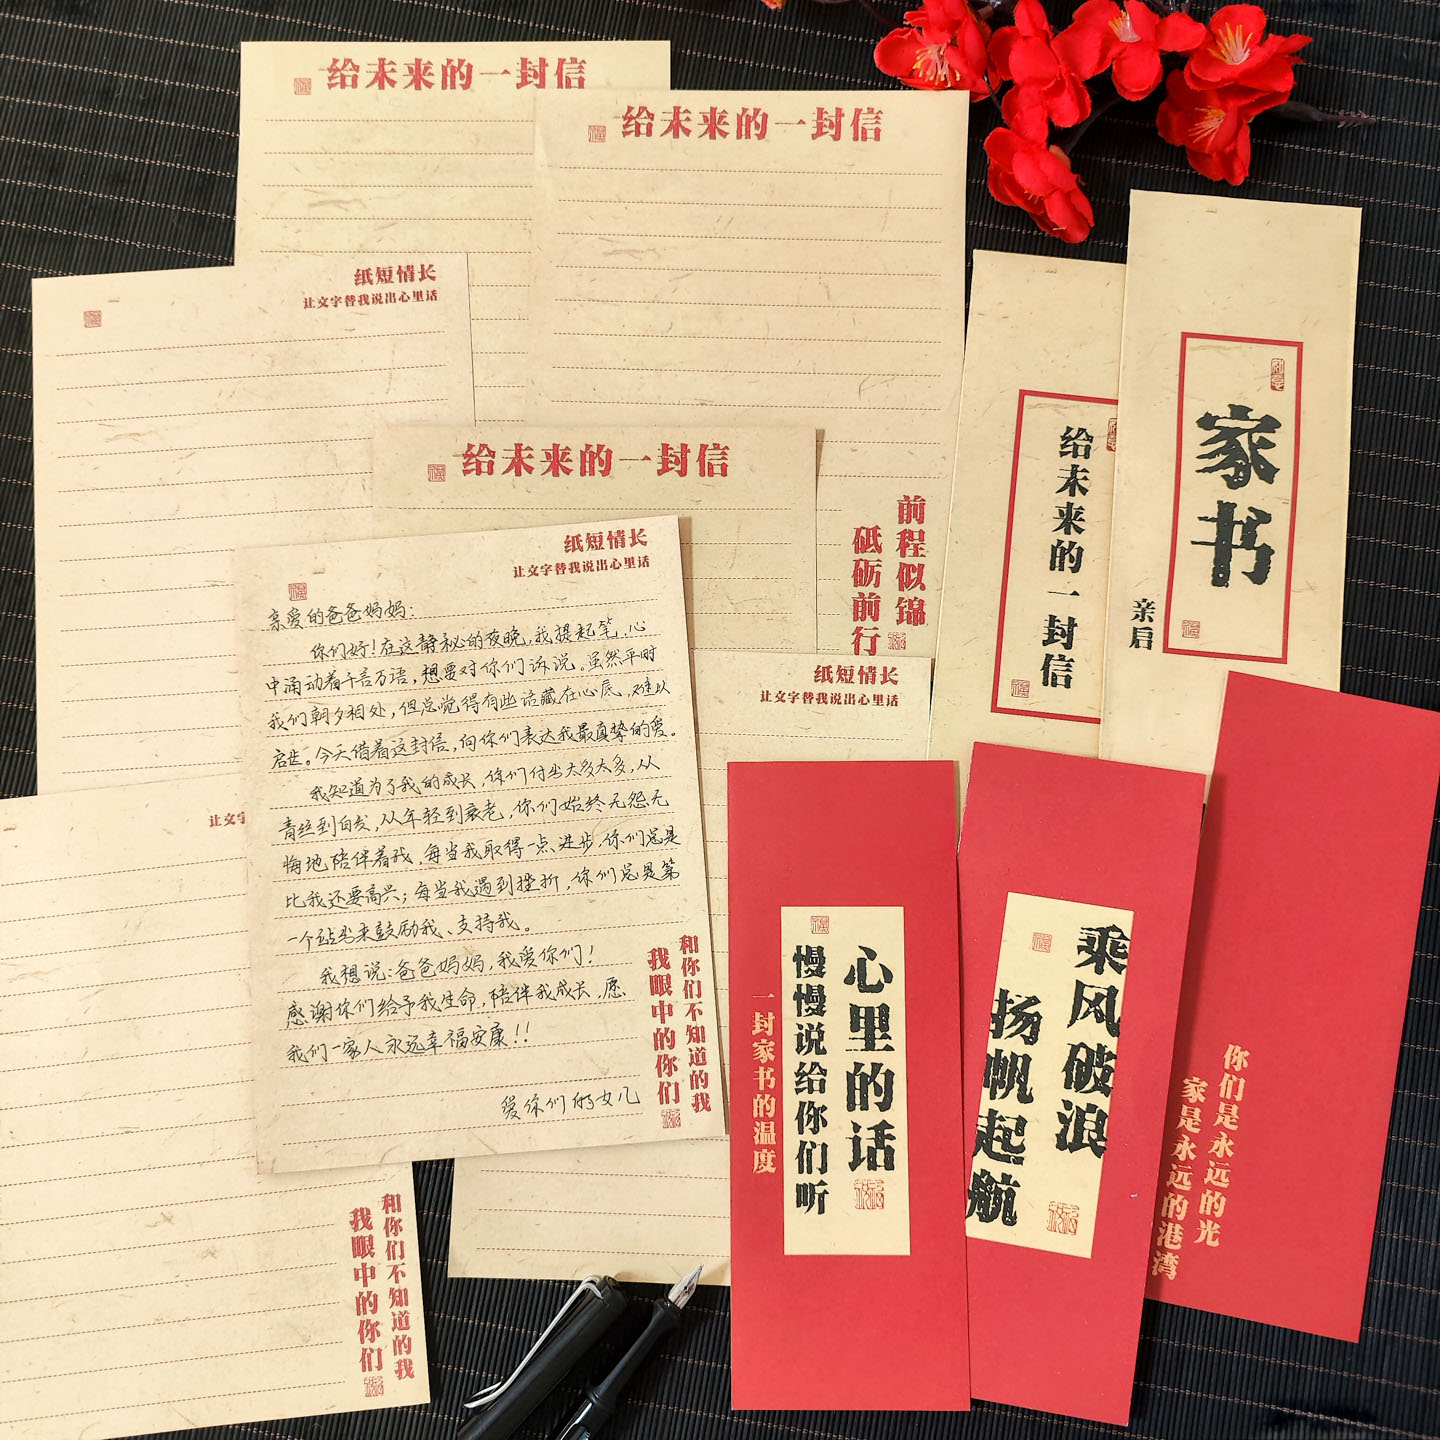 给未来的一封信
给未来的一封信
前程似锦
砥砺前行
纸短情长
让文字替我说出心里话
给未来的一封信
纸短情长
让文字替我说出心里话
亲爱的爸爸妈妈：
你们好！在这静秘的夜晚，我提起笔，心
中涌动着千言万语，想要对你们诉说。虽然平时
我们朝夕相处，但总觉得有些话藏在心底，难以
启齿。今天借着这封信，向你们表达我最真挚的爱。
我知道为了我的成长，你们付出太多太多，从
青丝到白发，从年轻到衰老，你们始终无怨无
悔地陪伴着我，每当我取得一点进步，你们总是
比我还要高兴；每当我遇到挫折，你们总是第
一个站出来鼓励我、支持我。
我想说：爸爸妈妈，我爱你们！
感谢你们给予我生命，陪伴我成长，愿
我们一家人永远幸福安康！！
爱你们的女儿
和你们不知道的我
我眼中的你们
纸短情长
让文字替我说出心里话
让文字
和你们不知道的我
我眼中的你们
给未来的一封信
家书
亲启
心里的话
慢慢说给你们听
一封家书的温度
乘风破浪
扬帆起航
你们是永远的光
家是永远的港湾